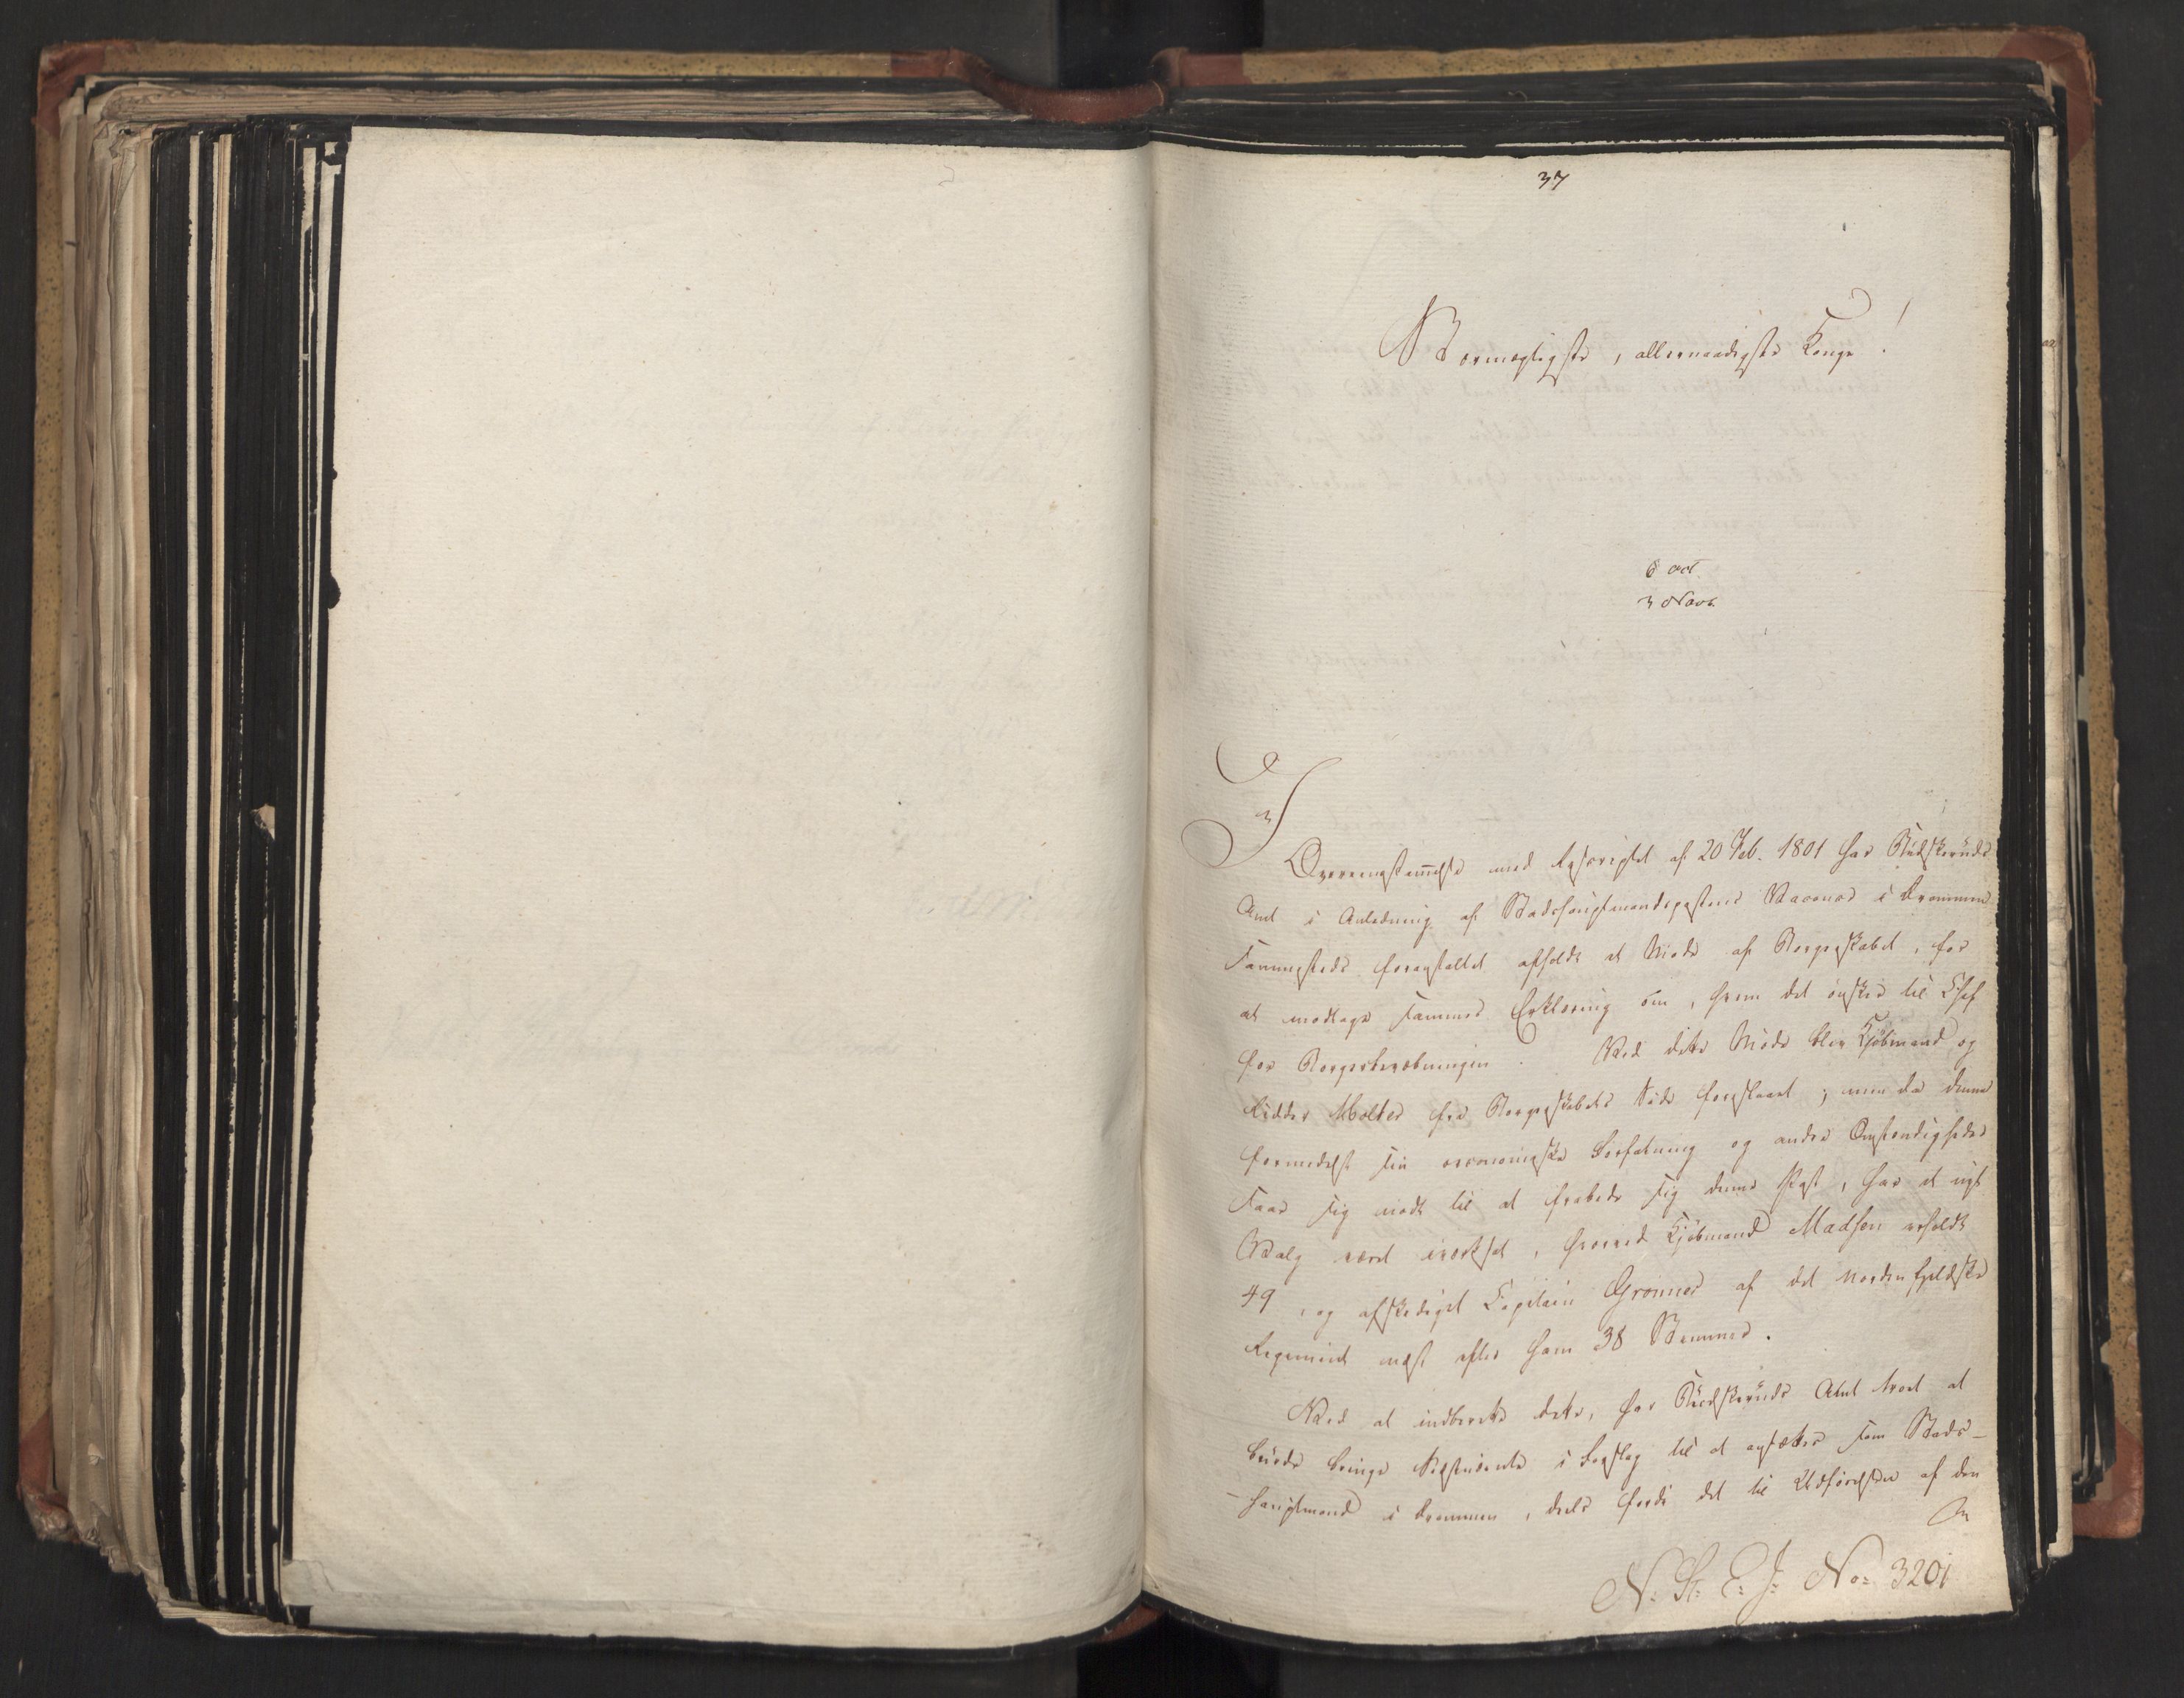 37
Stormægtigste, allernaadigste Konge!
6 Oct
3 Novb.
I
Overeensstemmelse med Rescriptet af 20 Feb. 1801 har Budskeruds
Amt i Anledning af Stadshauptmandspostens Vacance i Drammen
sammesteds foranstaltet afholdt et Møde af Borgerskabet, for
at modtage sammes Erklæring om, hvem det ønsker til Chef
for Borgerbevæbningen. Ved dette Møde blev Kjøbmand og
Ridder Moltes fra Borgerskabets Side foreslaaet; men da denne
formedelst sin oeconomiske Forfatning og andre Omstændigheder
saae sig nødt til at frabede sig denne Post, har et nyt
Valg været iværksat, hvorved Kjøbmand Madsen erholdt
49, og afskediget Capitain Grønner af det nordenfjeldske
Regiment næst efter ham 38 Stemmer.
Ved at indberette dette, har Budskeruds Amt troet at
burde bringe Sidstnævnte i Forslag til at ansættes som Stads-
-hauptmand i Drammen, deels fordi det til Udførelsen af den
N: St: E: J: No= 3201